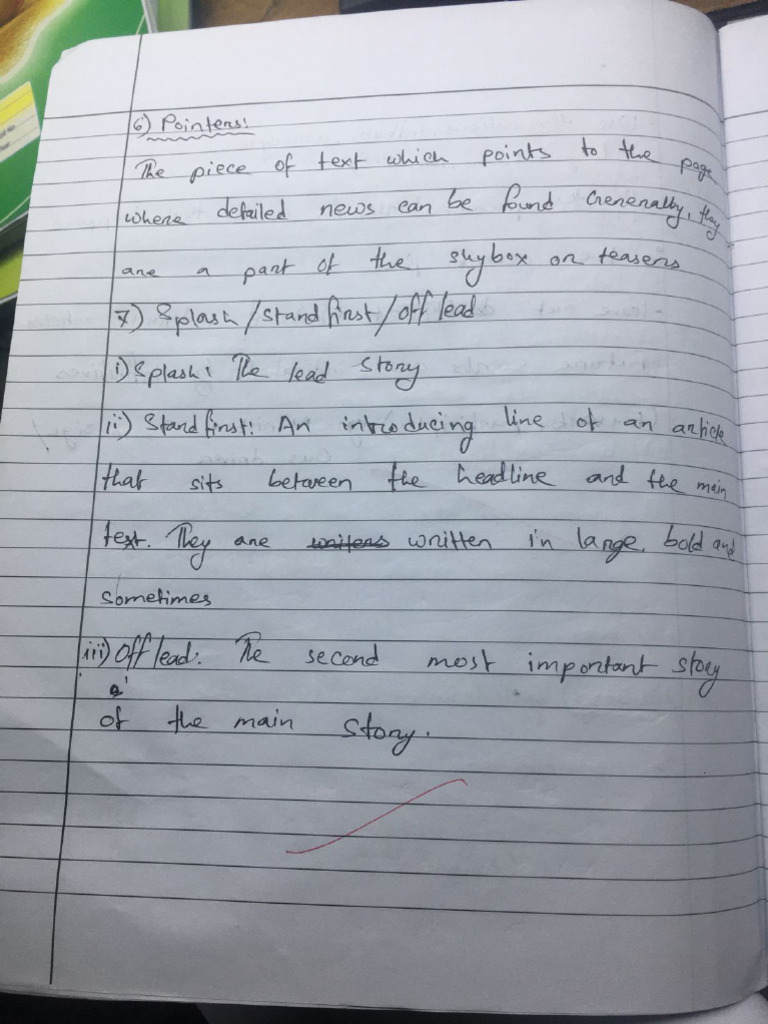 6) Pointers:
The piece of text which points to the page
where detailed news can be found Generally, they
are a part of the skybox or teasers
7) Splash/Stand first/Off lead
i) Splash: The lead story
ii) Stand first: An introducing line of an article
that sits between the headline and the main
text. They are written in large, bold and
sometimes
iii) Off lead: The second most important story
of the main story.